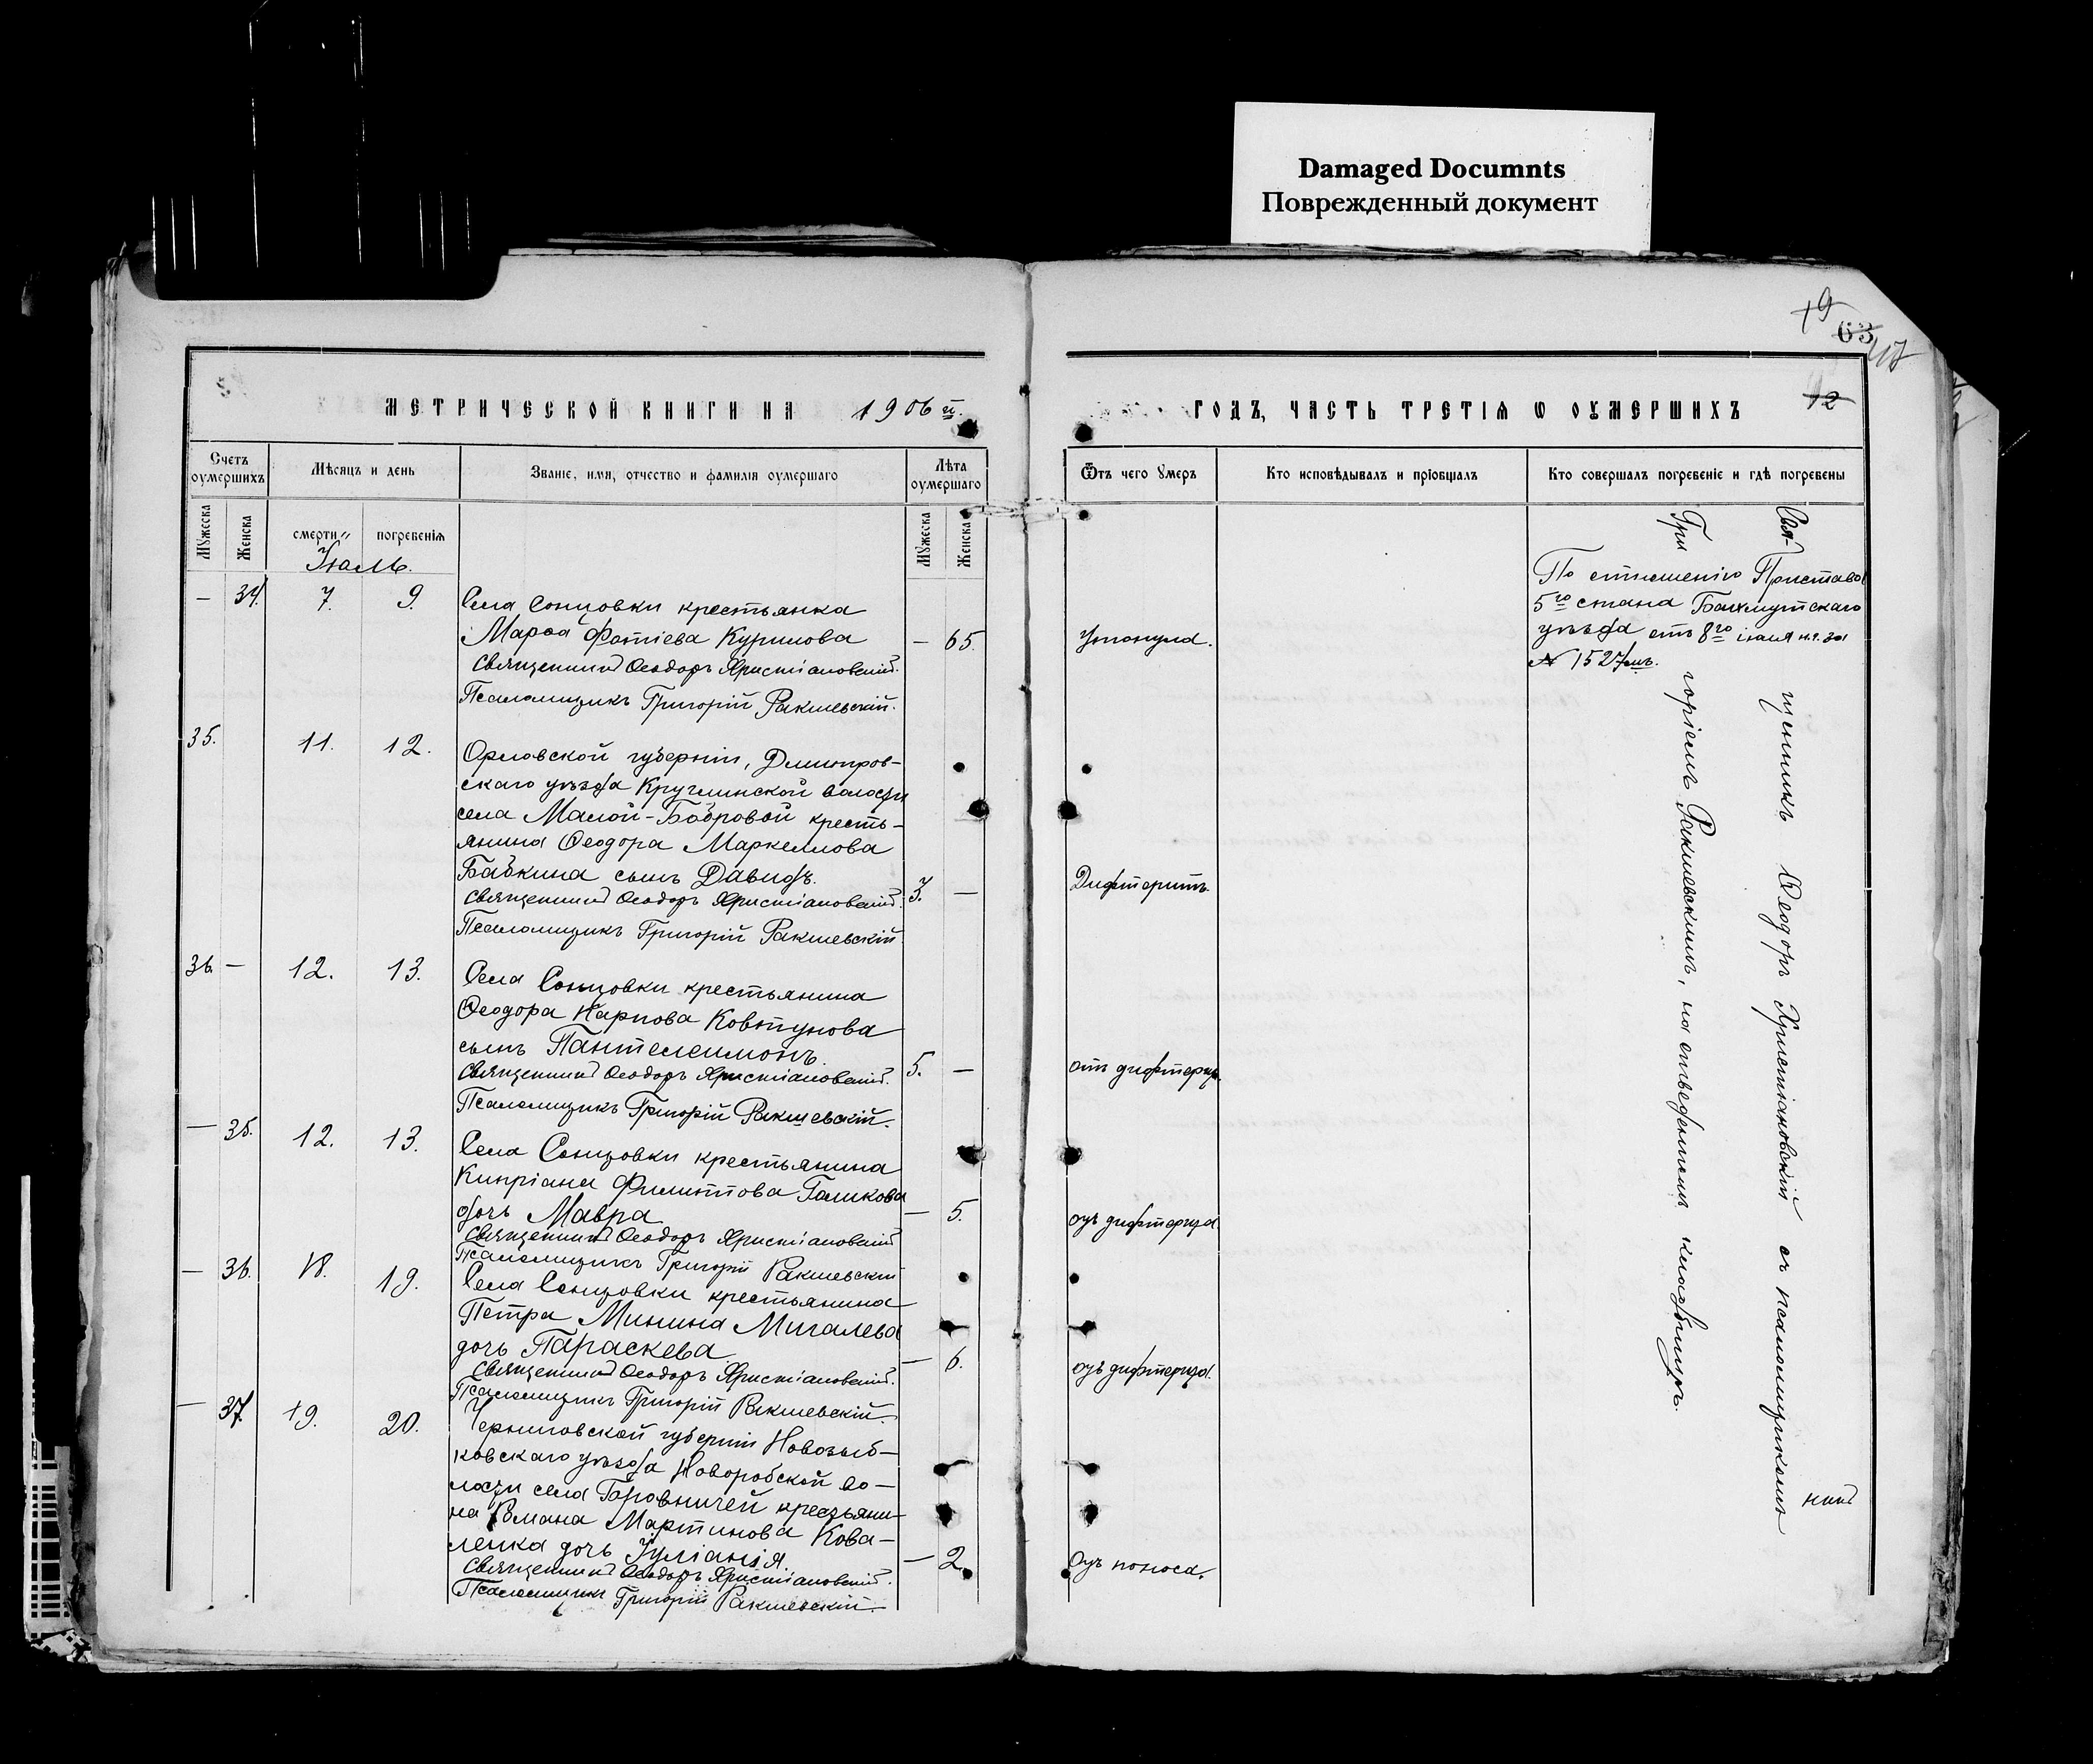 Damaged Documnts
Поврежденный документ
19
63
117
12
МЕТРИЧЕСКОЙ КНИГИ НА 1906 й.
ГОДЪ, ЧАСТЬ ТРЕТІѦ Ѡ ОУМЕРШИХЪ
Счетъ оумершихъ
Мѣсяцъ и день
Званіе, имя, отчество и фамилія оумершаго
Лѣта оумершаго
Ѿтъ чего умеръ
Кто исповѣдывалъ и пріобщалъ
Кто совершалъ погребеніе и гдѣ погребены
Мужеска
Женска
смерти
погребенія
Мужеска
Женска
Июль.
— 34. 7. 9.
Села Сонцовки крестьянка
Марѳа Фотіева Курилова
— 65.
Утонула.
Священникъ Ѳеодоръ Христіановскій.
Псаломщикъ Григорій Ракшевскій.
По отношенію Пристава
5го стана Бахмутскаго
уѣзда отъ 8го іюля н.г. за
№ 1527мъ.
35. 11. 12.
Орловской губерніи, Дмитров-
скаго уѣзда Круглинской волости
села Малой-Бобровой кресть-
янина Ѳеодора Маркеллова
Бабкина сынъ Давидъ.
3. —
Дифтеритъ.
Священникъ Ѳеодоръ Христіановскій.
Псаломщикъ Григорій Ракшевскій
36. — 12. 13.
Села Сонцовки крестьянина
Ѳеодора Карпова Ковтунова
сынъ Пантелеимонъ.
5. —
отъ дифтерита.
Священникъ Ѳеодоръ Христіановскій.
Псаломщикъ Григорій Ракшевскій.
— 35. 12. 13.
Села Сонцовки крестьянина
Кипріана Филиппова Галикова
дочь Мавра
— 5.
отъ дифтерита
Священникъ Ѳеодоръ Христіановскій
Псаломщикъ Григорій Ракшевскій
— 36. 18. 19.
Села Сонцовки крестьянина
Петра Минина Мигалева
дочь Параскева
— 6.
отъ дифтерита.
Священникъ Ѳеодоръ Христіановскій.
Псаломщикъ Григорій Ракшевскій.
— 37. 19. 20.
Черниговской губерніи Новозыб-
ковскаго уѣзда Новоробской во-
лости села крестьяни-
на Романа Мартинова Кова-
ленка дочь Іуліанія.
— 2.
отъ поноса.
Священникъ Ѳеодоръ Христіановскій.
Псаломщикъ Григорій Ракшевскій.
Свя-
щенникъ Ѳеодоръ Христіановскій съ псаломщикомъ
Гри
горіемъ Ракшевскимъ, на отведенномъ кладбищѣ.